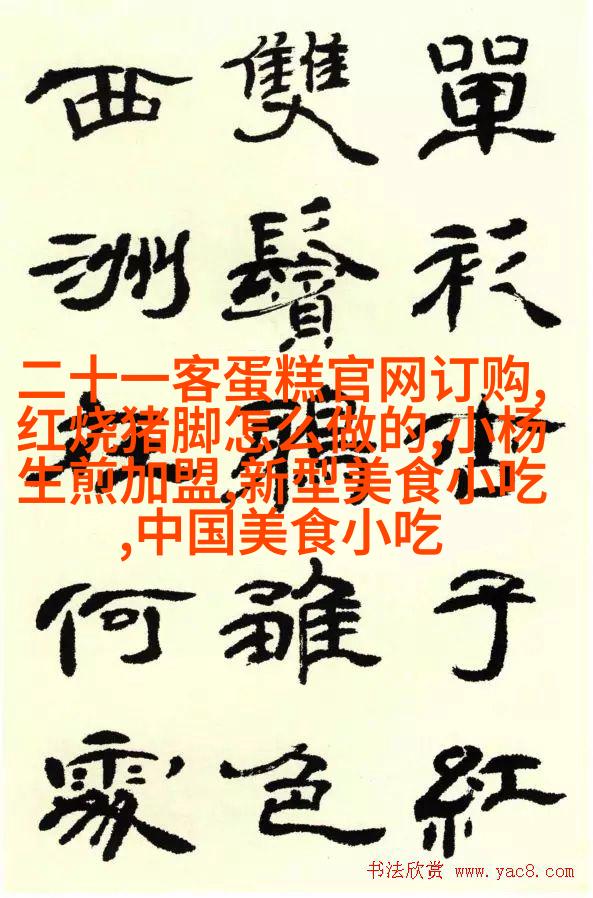 單衫子紅
雙鬢雛色
西洲在何處
二十一客蛋糕官网订购,
红烧猪脚怎么做的,小杨
生煎加盟,新型美食小吃
,中国美食小吃
书法欣赏 www.yac8.com